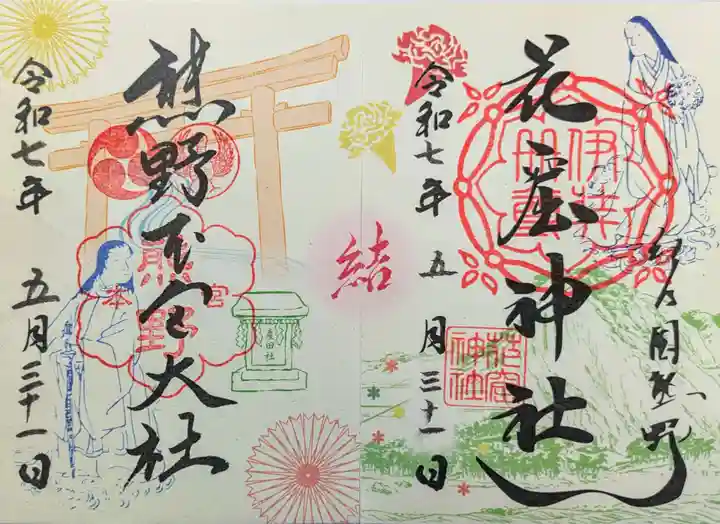 紀乃国熊野
花窟神社
伊弉冊尊
花窟神社
令和七年 五月三十一日
結
熊野本宮大社
熊野本宮
産田社
令和七年 五月三十一日